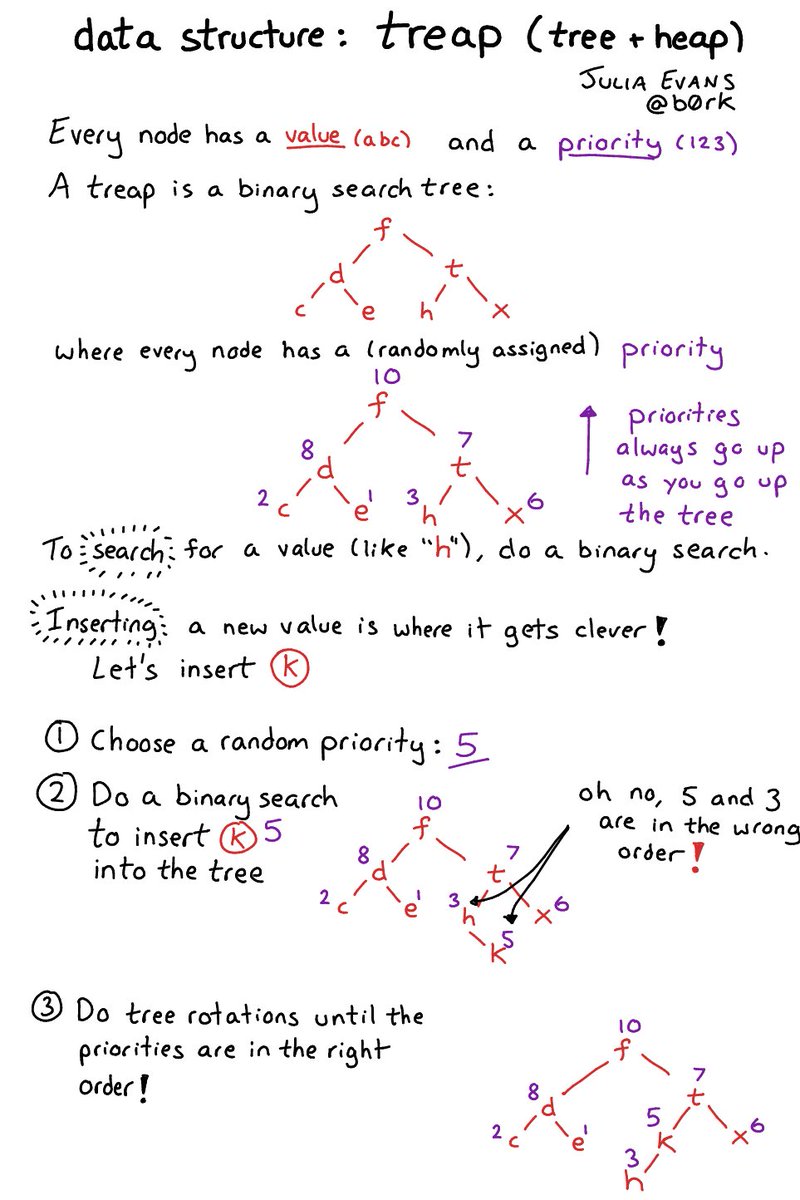 data structure: treap (tree + heap)
JULIA EVANS
@b0rk
Every node has a value (abc) and a priority (123)
A treap is a binary search tree:
f
d t
c e h x
where every node has a (randomly assigned) priority
10
f
8 d 7 t
2 c e 1 3 h x 6
priorities
always go up
as you go up
the tree
To search for a value (like "h"), do a binary search.
Inserting a new value is where it gets clever!
Let's insert k
1 Choose a random priority: 5
2 Do a binary search
to insert k 5
into the tree
10
f
8 d 7 t
2 c e 1 3 h x 6
k 5
oh no, 5 and 3
are in the wrong
order!
3 Do tree rotations until the
priorities are in the right
order!
10
f
8 d 7 t
2 c e 1 5 k x 6
3 h